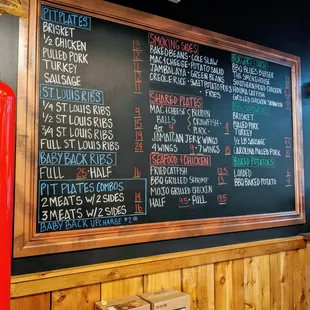 PIT PLATES
BRISKET
1/2 CHICKEN
PULLED PORK
TURKEY
SAUSAGE
ST. LOUIS RIBS
1/4 ST. LOUIS RIBS
1/2 ST. LOUIS RIBS
3/4 ST. LOUIS RIBS
FULL ST. LOUIS
BABY BACK RIBS
FULL 25 HALF 16
PIT PLATES COMBOS
2 MEATS W/2 SIDES
3 MEATS W/2 SIDES
BABY BACK UPCHARGE
SMOKING SIDES
BAKED BEANS · COLE SLAW
MAC & CHEESE · POTATO SALAD
JAMBALAYA · GREEN BEANS
CREOLE RICE · SWEET POTATO FRIES
SHARED PLATES
MAC & CHEESE
BALLS
PORK
JAMAICAN JERK WINGS
4 WINGS 9 7 WINGS
SEAFOOD & CHICKEN
FRIED CATFISH
BBQ GRILLED SHRIMP
MOJO GRILLED CHICKEN
HALF FULL
BBQ BLUES BURGER
THE SMOKEHOUSE
GRILLED CHICKEN SANDWICH
BRISKET
PULLED PORK
TURKEY
1/2 LB SAUSAGE
CAROLINA PULLED PORK
BAKED POTATOES
LOADED
BBQ BAKED POTATO